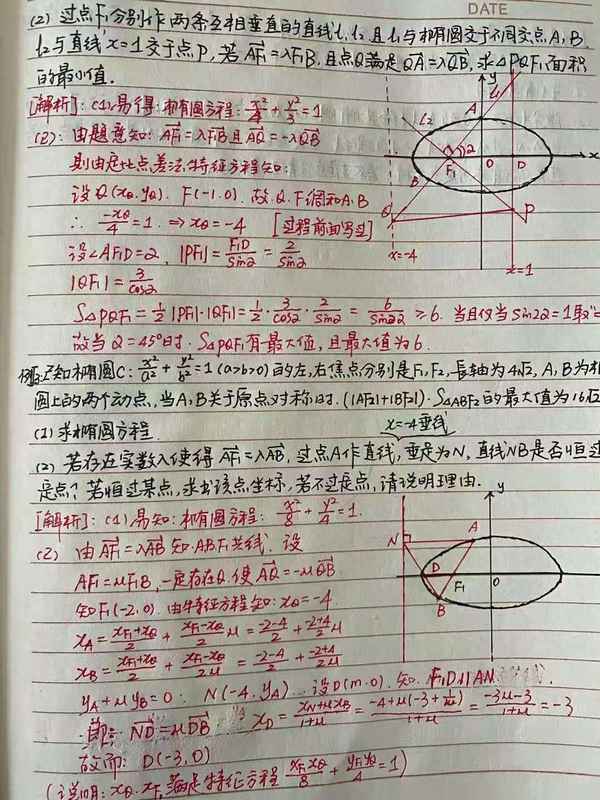 DATE
(2) 过点F₁分别作两条互相垂直的直线l₁,l₂且l₁与椭圆交于不同交点A,B.
l₂与直线x=1交于点P,若AF₁=λF₁B,且点Q满足QA=λQB,求△PQF₁面积
的最小值.
[解析]:(1)易得:椭圆方程:x²/4+y²/3=1
(2):由题意知:AF₁=λF₁B且AQ=-λQB
则由定比点差法,特征方程知:
设Q(xQ,yQ) F(-1,0).故Q,F调和A,B
∴ -xQ/4=1 ⇒ xQ=-4 [过程前面写过]
设∠AF₁D=2, |PF₁|=F₁D/sin2=2/sin2
|QF₁|=3/cos2
S△PQF₁=1/2|PF₁|·|QF₁|=1/2·3/cos2·2/sin2=6/sin22≥6.当且仅当sin22=1取"="
故当2=45°时.S△PQF₁有最大值,且最大值为6.
A
l₁
l₂
y
x
F₁
O
D
B
Q
P
2
x=-4
x=1
已知椭圆C:x²/a²+y²/b²=1(a>b>0)的左,右焦点分别是F₁,F₂,长轴为4√2,A,B为椭
圆上的两个动点,当A,B关于原点对称时.(|AF₂|+|BF₂|)·S△ABF₂的最大值为16√2
(1)求椭圆方程.
x=-4垂线
(2) 若存在实数λ使得AF₁=λAB,过点A作直线,垂足为N,直线NB是否恒过
定点?若恒过某点,求出该点坐标,若不过定点,请说明理由.
[解析]:(1)易知:椭圆方程:x²/8+y²/4=1.
(2) 由AF₁=λAB知.A,B,F₁共线.设
AF₁=μF₁B,一定存在Q.使AQ=-μQB
知F₁(-2,0).由特征方程知:xQ=-4
xA=(xF₁+xQ)/2+(xF₁-xQ)/2 μ=(-2-4)/2+(-2+4)/2 μ
xB=(xF₁+xQ)/2+(xF₁-xQ)/2μ=(-2-4)/2+(-2+4)/2μ
yA+μyB=0. N(-4,yA)...设D(m,0).知.F₁D∥AN
即:ND=μDB xD=(xN+μxB)/(1+μ)=(-4+μ(-3+1/μ))/(1+μ)=(-3μ-3)/(1+μ)=-3
故而:D(-3,0)
(说明:xQ.xF₁满足特征方程 xF xQ/8+yF yQ/4=1)
y
N
A
D
F₁
O
B